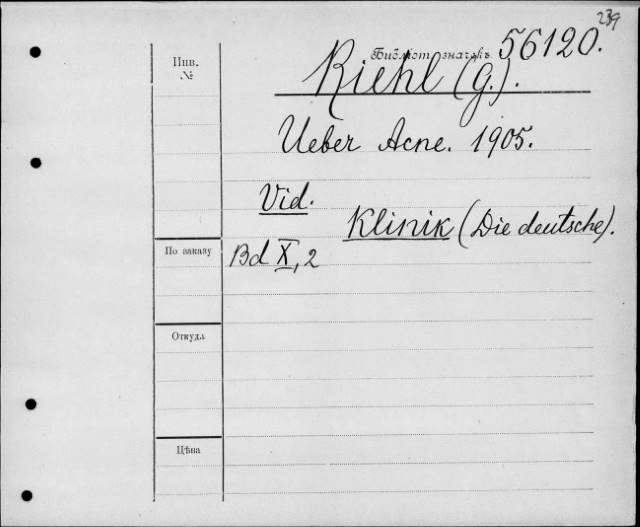 239
Инв.
№
Библіот. значекъ. 56120.
Riehl (G.).
Ueber Acne. 1905.
Vid.
Klinik (Die deutsche).
По заказу
Bd X, 2
Откуда
Цѣна